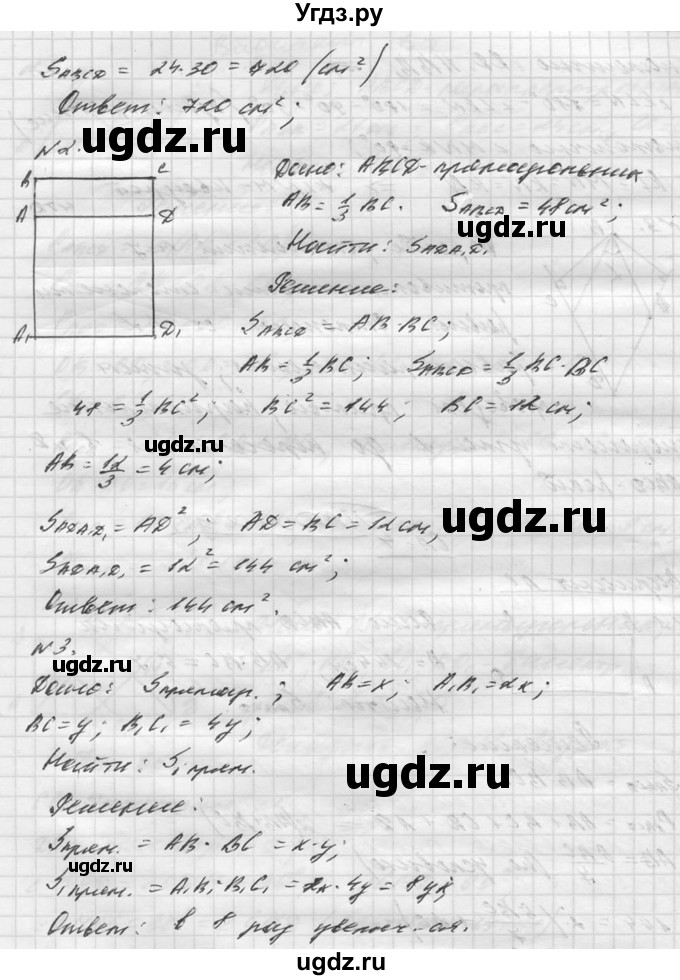 Угдз.ру
S_ABCD = 24·30 = 720 (см²)
Ответ: 720 см²;
ugdz.ru
N2.
B C
A D
A₁ D₁
Дано: ABCD - прямоугольник
AB = 1/3 BC. S_ABCD = 48 см²;
ugdz.ru
Найти: S_ADA₁D₁
Решение:
S_ABCD = AB·BC;
AB = 1/3 BC; S_ABCD = 1/3 BC·BC
48 = 1/3 BC²; BC² = 144; BC = 12 см;
ugdz.ru
AB = 12/3 = 4 см;
S_ADA₁D₁ = AD²; AD = BC = 12 см,
ugdz.ru
S_ADA₁D₁ = 12² = 144 см²;
Ответ: 144 см².
N3.
Дано: S прямоуг.; AB = x; A₁B₁ = 2x;
BC = y; B₁C₁ = 4y;
Найти: S₁ прям.
ugdz.ru
Решение:
S прям. = AB·BC = x·y;
ugdz.ru
S₁ прям. = A₁B₁·B₁C₁ = 2x·4y = 8yx;
Ответ: в 8 раз увелич-ся.
ugdz.ru
ugdz.ru